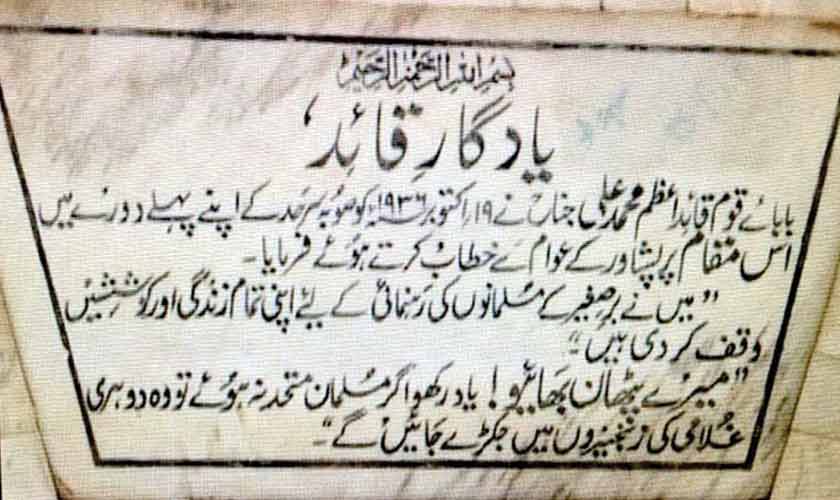 بسم اللہ الرحمٰن الرحیم
یادگارِ قائد،
بابائے قوم قائداعظم محمد علی جناح نے ۱۹ اکتوبر ۱۹۳۶ء کو صوبہ سرحد کے اپنے پہلے دورے میں
اس مقام پر پشاور کے عوام سے خطاب کرتے ہوئے فرمایا۔
"میں نے برصغیر کے مسلمانوں کی رہنمائی کے لیئے اپنی تمام زندگی اور کوششیں
وقف کر دی ہیں"۔
"میرے پٹھان بھائیو! یاد رکھو اگر مسلمان متحد نہ ہوئے تو وہ دوہری
غلامی کی زنجیروں میں جکڑے جائیں گے"۔